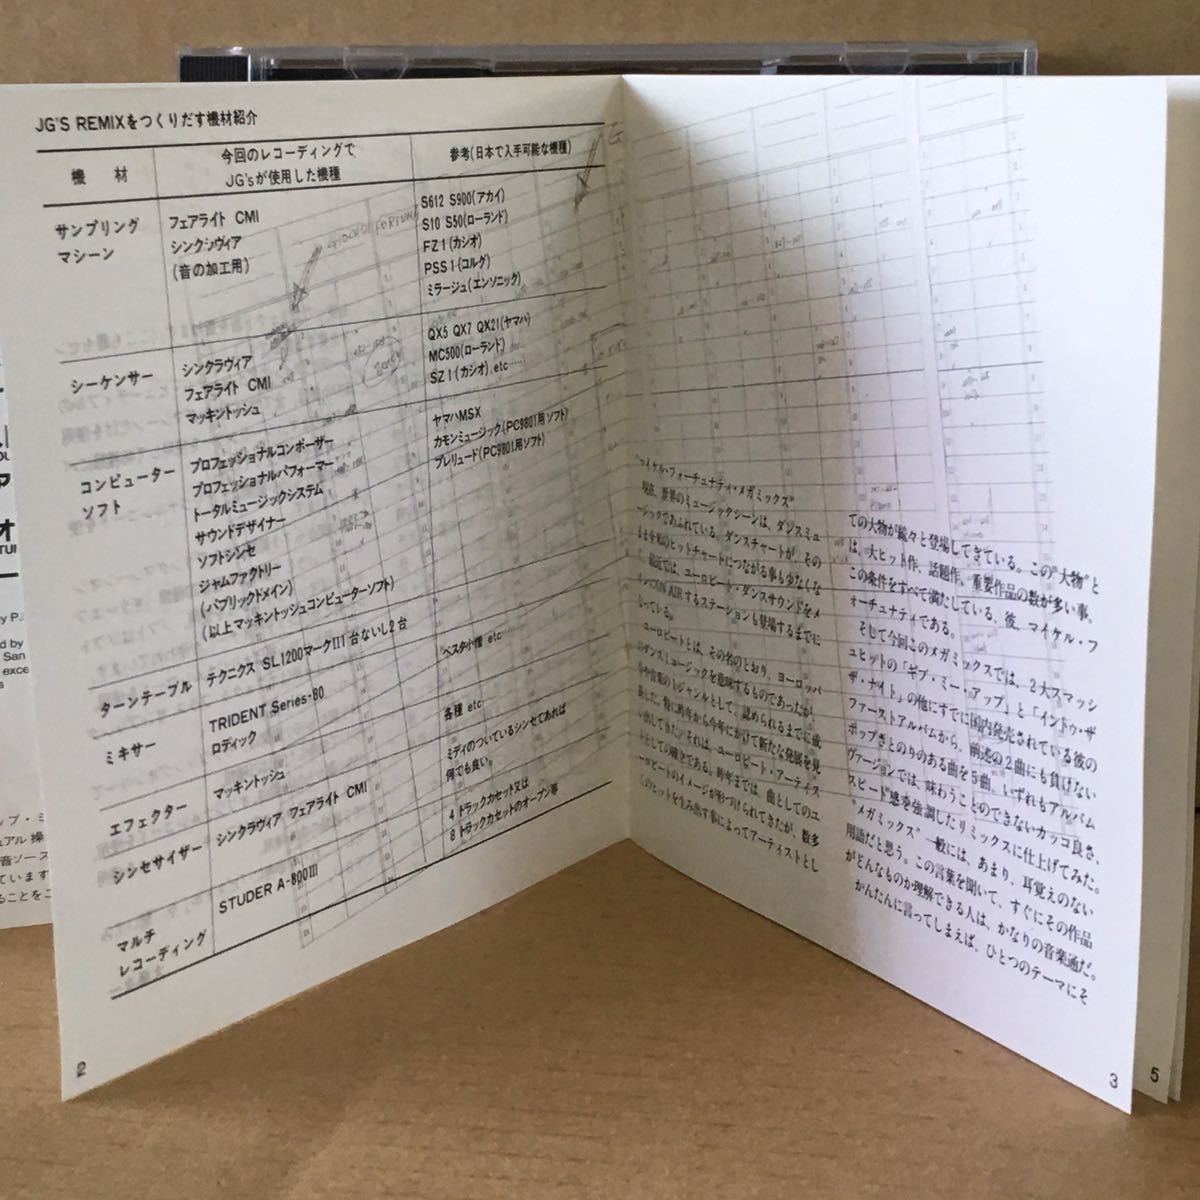 JG'S REMIXをつくりだす機材紹介
機　材
今回のレコーディングで
JG'sが使用した機種
参考(日本で入手可能な機種)
サンプリング
マシーン
フェアライト CMI
シンクシヴィア
(音の加工用)
S612 S900(アカイ)
S10 S50(ローランド)
FZ1(カシオ)
PSS1(コルグ)
ミラージュ(エンソニック)
シーケンサー
シンクラヴィア
フェアライト CMI
マッキントッシュ
QX5 QX7 QX21(ヤマハ)
MC500(ローランド)
SZ1(カシオ) etc……
コンピューター
ソフト
プロフェッショナルコンポーザー
プロフェッショナルパフォーマー
トータルミュージックシステム
サウンドデザイナー
ソフトシンセ
ジャムファクトリー
(パブリックドメイン)
(以上マッキントッシュコンピューターソフト)
ヤマハMSX
カモンミュージック(PC9801用ソフト)
プレリュード(PC9801用ソフト)
ターンテーブル
テクニクス SL1200マークIII1台ないし2台
ベスタ小僧 etc……
ミキサー
TRIDENT Series-80
ロディック
各種 etc……
エフェクター
マッキントッシュ
ミディのついているシンセであれば
何でも良い。
シンセサイザー
シンクラヴィア フェアライト CMI
4トラックカセット又は
8トラックカセットのオープン等
マルチ
レコーディング
STUDER A-800III
2
"マイケル・フォーチュナティ・メガミックス"
現在、世界のミュージックシーンは、ダンスミュ
ージックであふれている。ダンスチャートが、その
まま全米のヒットチャートにつながる事も少なくな
い。最近では、ユーロビート・ダンスサウンドをメ
インにON AIRするステーションも登場するまでに
なっている。
ユーロビートとは、その名のとおり、ヨーロッパ
のダンスミュージックを意味するものであったが、
今や音楽の1ジャンルとして、認められるまでに成
長した。特に昨年から今年にかけて新たな発展を見
い出してきた。それは、ユーロビート・アーティス
トとしての確立である。昨年までは、曲としてのユ
ーロビートのイメージが形づけられてきたが、数多
くのヒットを生み出す事によってアーティストとし
ての大物が続々と登場してきている。この"大物"と
は、大ヒット作、話題作、重要作品の数が多い事。
この条件をすべて満たしている。彼、マイケル・フ
ォーチュナティである。
そして今回このメガミックスでは、2大スマッシ
ュヒットの「ギブ・ミー・アップ」と「イントゥ・ザ・
ザ・ナイト」の他にすでに国内発売されている彼の
ファーストアルバムから、前述の2曲にも負けない
ポップさとのりのある曲を5曲。いずれもアルバム
ヴァージョンでは、味わうことのできないカッコ良さ、
スピード感を強調したリミックスに仕上げてみた。
"メガミックス"一般には、あまり、耳覚えのない
用語だと思う。この言葉を聞いて、すぐにその作品
がどんなものか理解できる人は、かなりの音楽通だ。
かんたんに言ってしまえば、ひとつのテーマにそ
3
5